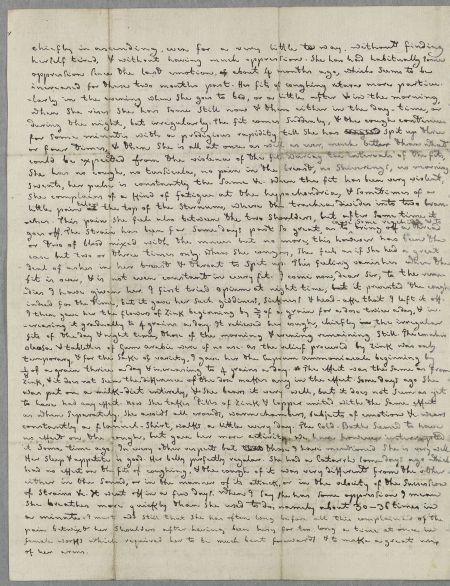 chiefly in ascending, even for a very little way, without finding
herself tired, & without having much oppression. She has had habitually some
oppression since the last emotion, of about 4 months ago, which seems to be
increased for these two months past. Her fit of coughing returns more particu-
larly in the evening when she goes to bed, or a little after & in the morning,
when she rises. She has some still now & then either in the day time, or
during the night, but irregularly. The fit comes suddenly, & the cough continues
for some minutes with a prodigious rapidity till she has spit up three
or four times, & then she is all at once as well as ever, much better than what
could be expected from the violence of the fit
She has no cough, no pain in the breast, no shivering, no morning
sweats, her pulse is constantly the same & when the fit has been very violent,
she complains of a kind of fatigue at the hypochondria, & sometimes of a
little pain at the top of the sternum, where the trachea divides into two bran-
ches. This pain she feels also between the two shoulders, but after some time it
goes off. The strain has been for some days past so great, as to bring off
or two of blood mixed with the mucus but no more, this however has been the
case but two or three times only. When she coughs, she feels as if she had a great
deal of ashes in her breast & throat to spit up. This feeling vanishes when the
fit is over, & is not even constant in every fit. I come now, dear Sir, to the reme-
dies I have given her. I first tried opium at night time, but it prevented the cough
indeed for the time, but it gave her such giddiness, & head-ake that I left it off.
I then gave her the flowers of Zink beginning by of a grain for a dose twice a day, & in-
creasing it gradually to 6 grains a day. It relieved her cough, chiefly in the irregular
fits of the day & night time, those of the morning & evening remaining still.
of were of no use. As the relief procured by Zink was only
temporary, & for the sake of variety, I gave her the Cuprum ammoniacale beginning by
of a grain thrice a day & increasing to 4 grains a day. The effect was the same as from
Zink, & it does not seem the difference of the dose makes any in the effect. Some days ago she
was put on a milk-diet intirely, & she bears it very well, but it does not seem as yet
to have had any effect. Now she takes pills of Zink & copper united with the same effect
as when separately. She avoids all crowds, warm chambers, subjects of emotions & wears
constantly a flannel-shirt, walks a little every day. The Cold-Bath seemed to have
no effect on the cough, but gave her more activity, we have however interrupted
it some time ago. In every other respect but those I have mentioned she is very well.
Her sleep & appetite are good. Her belly perfectly regular. She had a Catarrh some days ago which
had no effect on the fit of coughing, & the cough of it was very different from the other
either in the sound, or in the manner of its attack, or in the velocity of the succession
of strains &c. It went off in a few days. When I say she has some oppression I mean
she breathes more quickly than she used to do, namely about 30-36 times in
a minute. I must add still that she has often long before all this complained of the
pain betwixt her shoulders after having been busy for too long a time at once in
female works which required her to be much bent forwards & to make a great use
of her arms.